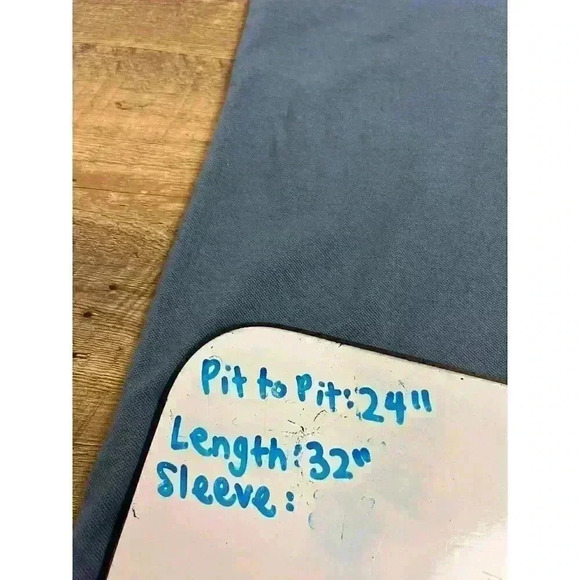 Pit to Pit: 24"
Length: 32"
Sleeve: